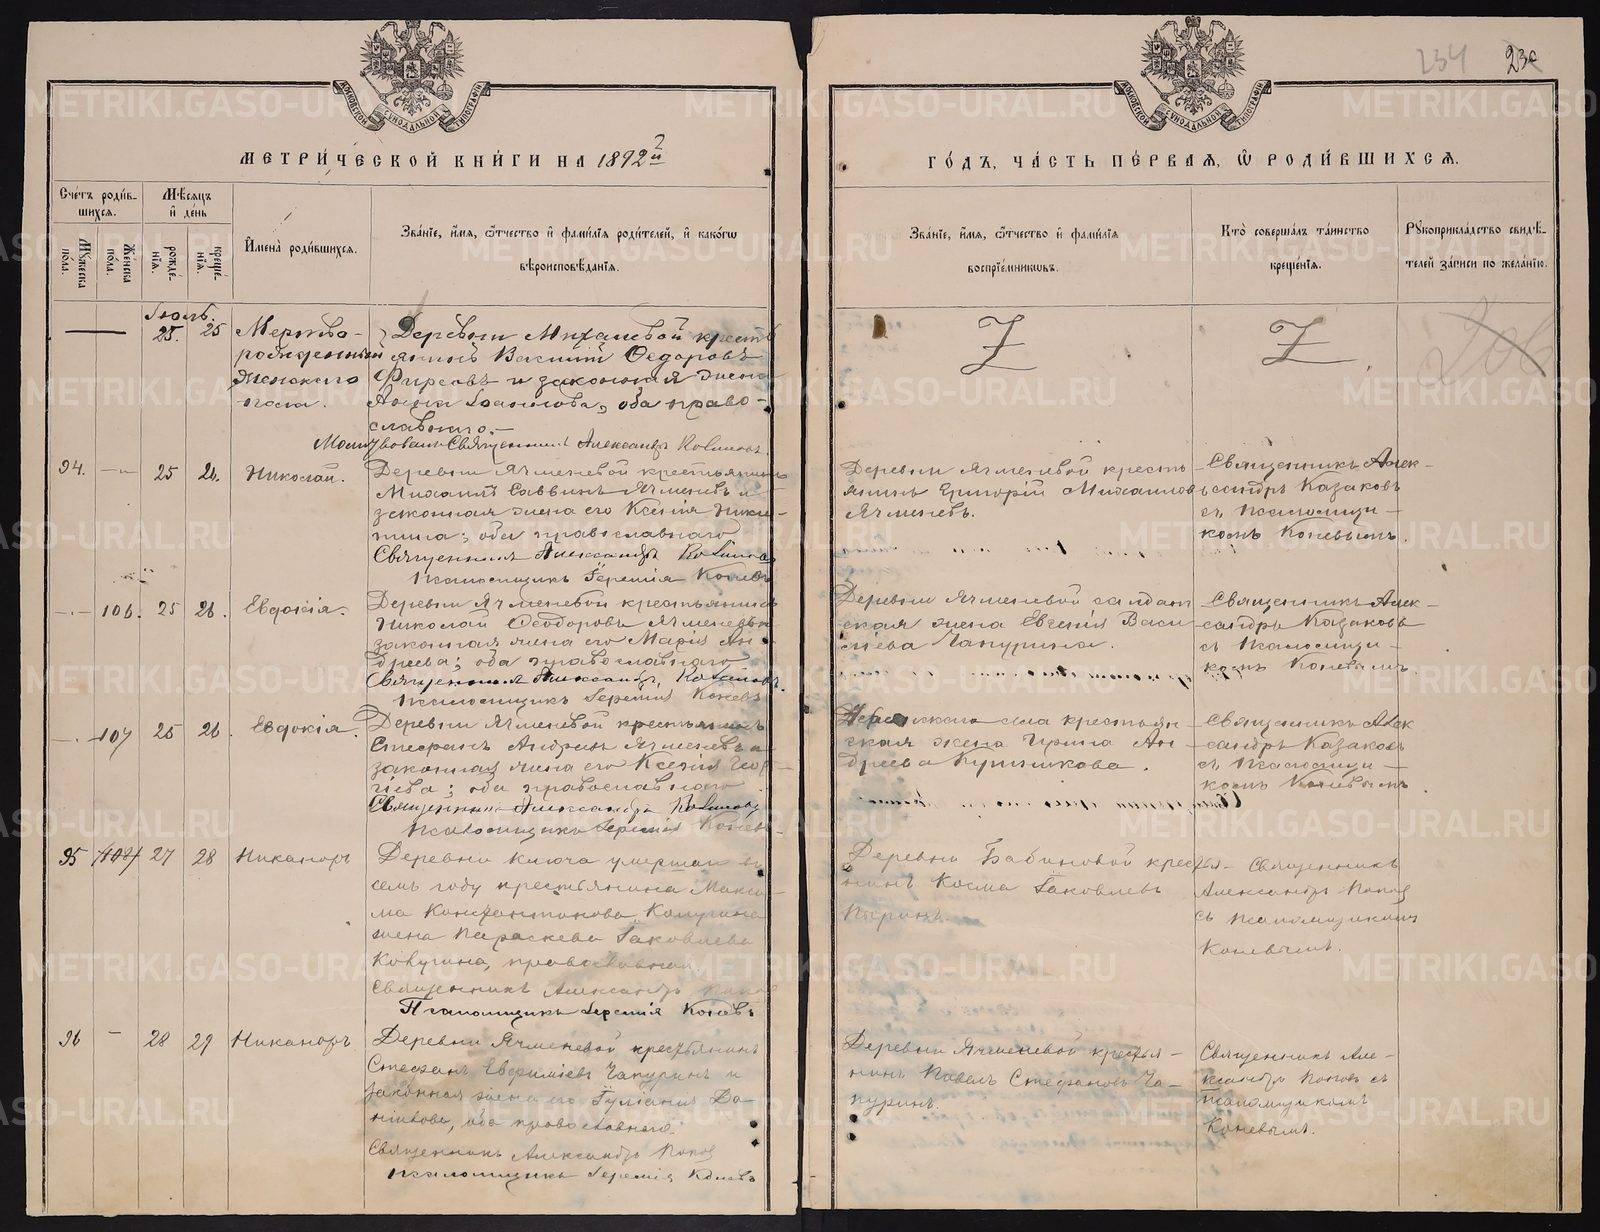 МЕТРИ́ЧЕСКОЙ КНИ́ГИ НА 1892й
ГО́ДЪ, ЧА́СТЬ ПЕ́РВАЯ, Ѡ РОДИ́ВШИХСЯ.
234
Сче́тъ роди́в-
шихся.
Мѣ́сяцъ
и де́нь
Му́жеска по́ла.
Же́нска по́ла.
рожде́-
нія.
креще́-
нія.
И҆мена̀ роди́вшихся.
Зва́ніе, и҆́мя, ѻ҆́тчество и҆ фами́лія роди́телей, и҆ како́гѡ
вѣроисповѣ́данія.
Зва́ніе, и҆́мя, ѻ҆́тчество и҆ фами́лія
воспрїе́мникѡвъ.
Кто̀ соверша́лъ та́инство
креще́нія.
Рꙋкоприкла́дство свидѣ́-
телей за́писи по жела́нію.
Іюль.
25. 25 Мертво- Деревни Михалевой кресть
рожденный янинъ Василій Ѳедоровъ
Женскаго Фирсовъ и законная жена
пола. Анна Іоаннова, оба право-
славнаго.
Священникъ Александръ Казаковъ
94. 25 26. Николай. Деревни Ячменевой крестьянинъ
Михаилъ Саввинъ Ячменевъ и
законная жена его Ксенія Ники-
тина; оба православнаго
Священникъ Александръ Казаковъ
Псаломщикъ Іеремія Коневъ
Деревни Ячменевой кресть
янинъ Григорій Михаиловъ
Ячменевъ.
Священникъ Алек-
сандръ Казаковъ
съ псаломщи-
комъ Коневымъ.
106. 25 26. Евдокія. Деревни Ячменевой крестьянинъ
Николай Ѳеодоровъ Ячменевъ и
законная жена его Марія Ан-
дреева; оба православнаго
Священникъ Александръ Казаковъ.
Псаломщикъ Іеремія Коневъ
Деревни Ячменевой солдат
ская жена Евгенія Васи
ліева Чапурина.
Священникъ Алек-
сандръ Казаковъ
съ псаломщи-
комъ Коневымъ
107 25 26. Евдокія. Деревни Ячменевой крестьянинъ
Стефанъ Андріинъ Ячменевъ и
законная жена его Ксенія Геор-
гіева; оба православнаго.
Священникъ Александръ Казаковъ
Псаломщикъ Іеремія Коневъ
села крестьян
ская жена Ирина Ан-
дреева
Священникъ Алек
сандръ Казаковъ
съ псаломщи-
комъ Коневымъ
95 27 28 Никаноръ Деревни Ключа умершаго въ
семъ году крестьянина Макси-
ма Константинова Кочугина
жена Параскева Іаковлева
Кочугина, православная.
Священникъ Александръ Поповъ
Псаломщикъ Іеремія Коневъ
Деревни Бабиновой кресть-
янинъ Косма Іаковлевъ
Священникъ
Александръ Поповъ
съ псаломщикомъ
Коневымъ.
96 - 28 29 Никаноръ Деревни Ячменевой крестьянинъ
Стефанъ Евфиміевъ Чапуринъ и
законная жена его Іуліанія Да-
нилова, оба православнаго.
Священникъ Александръ Поповъ
Псаломщикъ Іеремія Коневъ
Деревни Ячменевой крестья-
нинъ Павелъ Стефановъ Ча-
пуринъ.
Священникъ Але-
ксандръ Поповъ съ
псаломщикомъ
Коневымъ.
METRIKI.GASO-URAL.RU